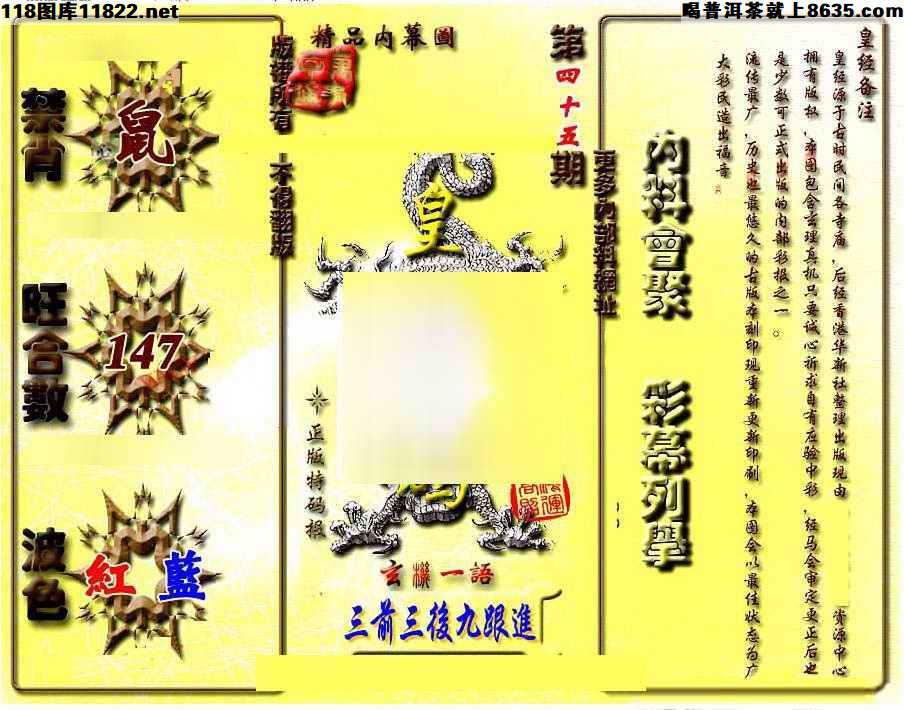 118图库11822.net
喝普洱茶就上8635.com
精品内幕圖
第四十五期
版權所有
不得翻版
更多內部料網址
禁肖
鼠
旺合數
147
波色
紅 藍
皇
正版特码报
玄機一語
三前三後九跟進
內料會聚
彩幕列舉
皇经备注
皇经源于古时民间各寺庙，后经香港华新社整理出版现由资源中心
拥有版权，本图包含玄理真机只要诚心祈求自有应验中彩，经马会审定更正后也
是少数可正式出版的内部彩报之一。
流传最广，历史也最悠久的古版本刻印现重新更新印刷，本图会以最佳状态为广
大彩民造出福音。